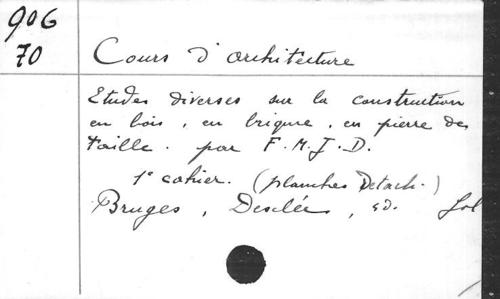 906
70
Cours d'architecture
Etudes diverses sur la construction
en bois, en brique, en pierre de
taille. par F.M.J.D.
1e cahier. (planches Detach.)
Bruges, Desclée, sd. fol